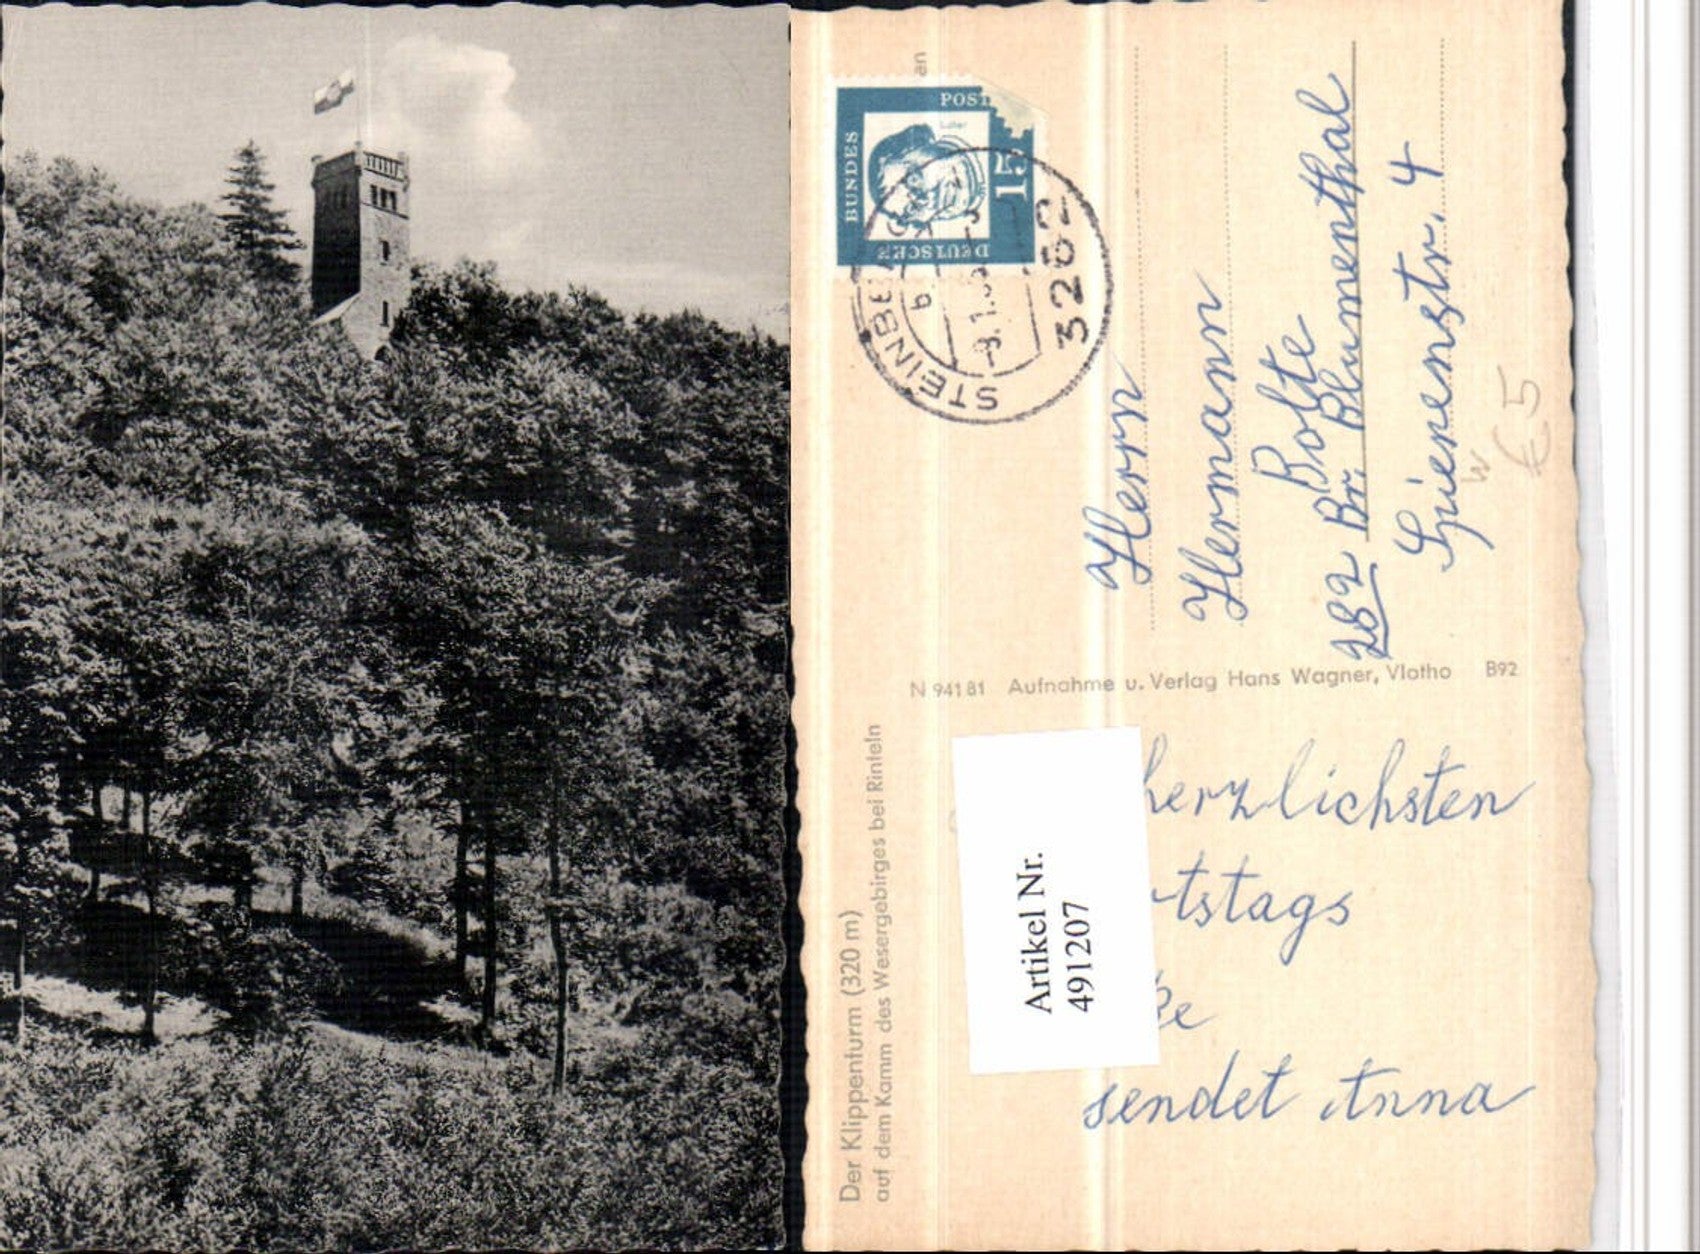 Der Klippenturm (320 m)
auf dem Kamm des Wesergebirges bei Rinteln
an
DEUTSCHE
BUNDES
POST
Luther
15
STEINBE
3262
b
-8.1.
N 94181 Aufnahme u. Verlag Hans Wagner, Vlotho B92
Herrn
Hermann
Bolte
282 Br. Blumenthal
Lüienenstr. 4
€ 5
w
Artikel Nr.
491207
herzlichsten
tstags
ße
sendet Anna